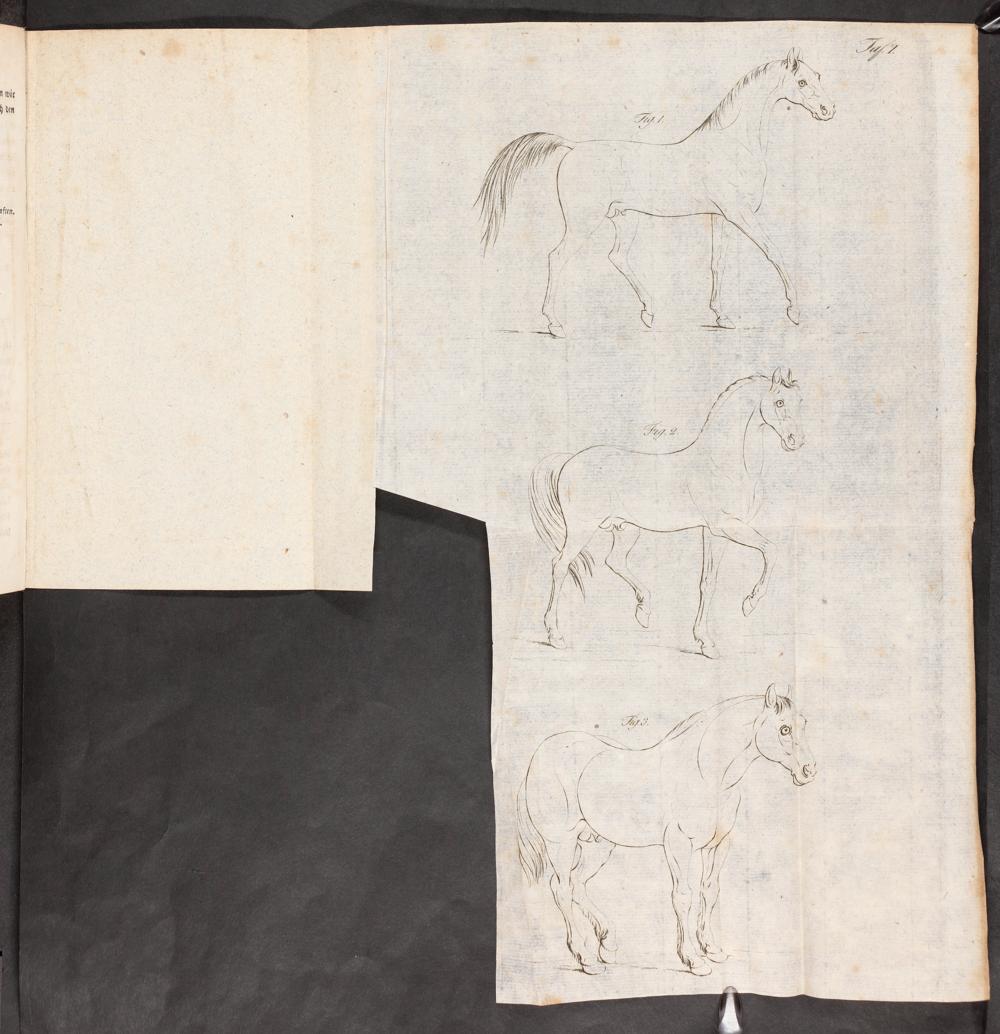 n wir
h den
aften.
Taf 1.
Fig. 1.
Fig. 2.
Fig. 3.